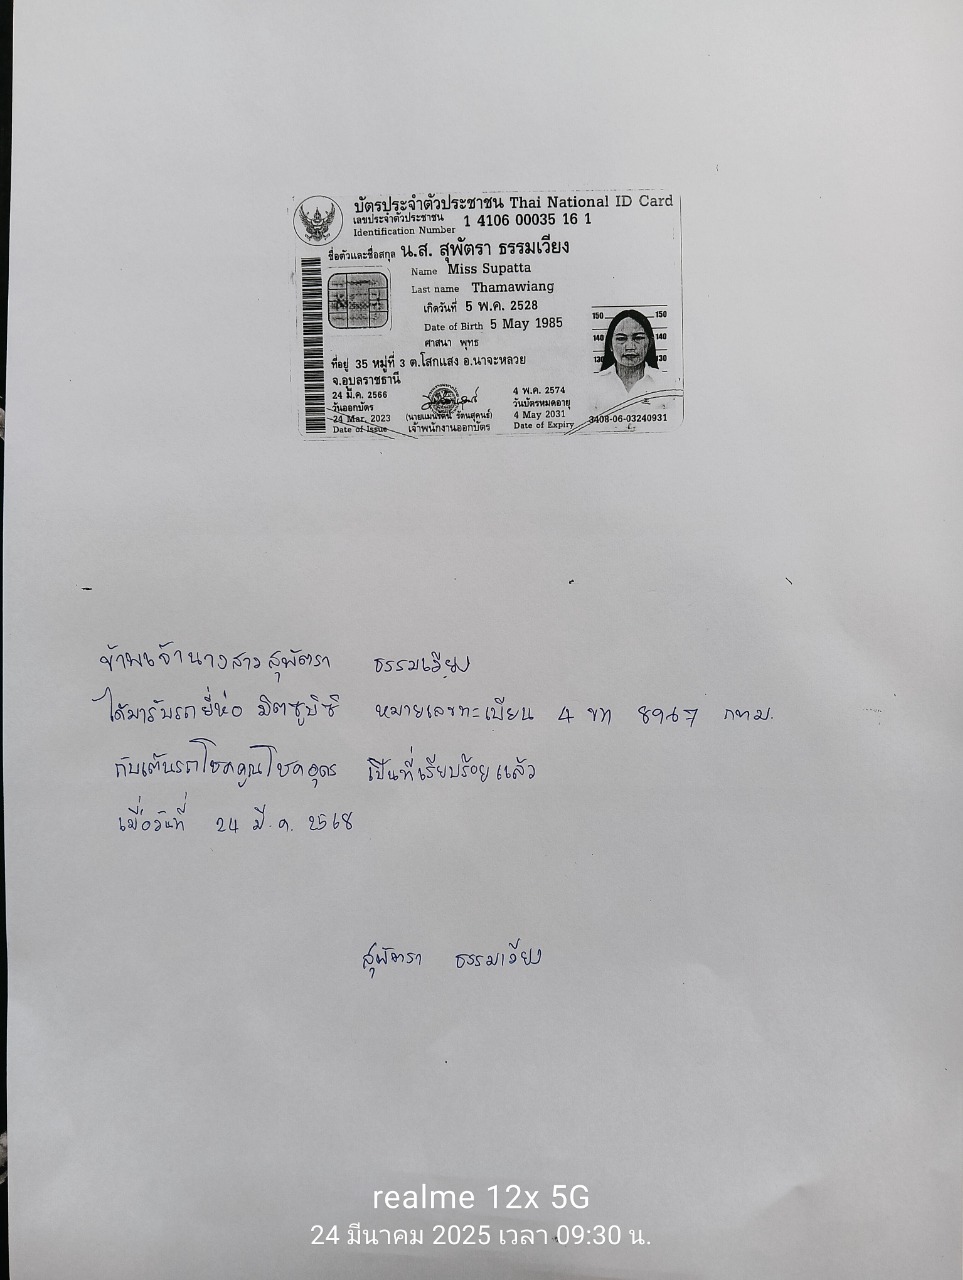 บัตรประจำตัวประชาชน Thai National ID Card
เลขประจำตัวประชาชน 1 4106 00035 16 1
Identification Number
ชื่อตัวและชื่อสกุล น.ส. สุพัตรา ธรรมเวียง
Name Miss Supatta
Last name Thamawiang
เกิดวันที่ 5 พ.ค. 2528
Date of Birth 5 May 1985
ศาสนา พุทธ
ที่อยู่ 35 หมู่ที่ 3 ต.โสกแสง อ.นาจะหลวย
จ.อุบลราชธานี
24 มี.ค. 2566
วันออกบัตร
24 Mar. 2023
Date of Issue
รัตนสุคนธ์)
เจ้าพนักงานออกบัตร
4 พ.ค. 2574
วันบัตรหมดอายุ
4 May 2031
Date of Expiry
150 150
140 140
130 130
3408-06-03240931
ข้าพเจ้านางสาวสุพัตรา ธรรมเวียง
ได้มารับรถยี่ห่อ มิตซูบิซิ หมายเลขทะเบียน 4 ขก 8967 กทม.
กับเต้นรถโชคคูณโชคอุดร เป็นที่เรียบร้อยแล้ว
เมื่อวันที่ 24 มี.ค. 2568
สุพัตรา ธรรมเวียง
realme 12x 5G
24 มีนาคม 2025 เวลา 09:30 น.